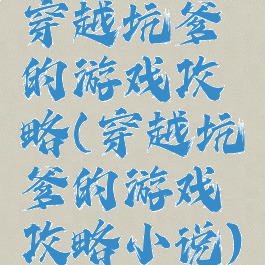 穿越坑爹
的游戏攻
略(穿越坑
爹的游戏
攻略小说)